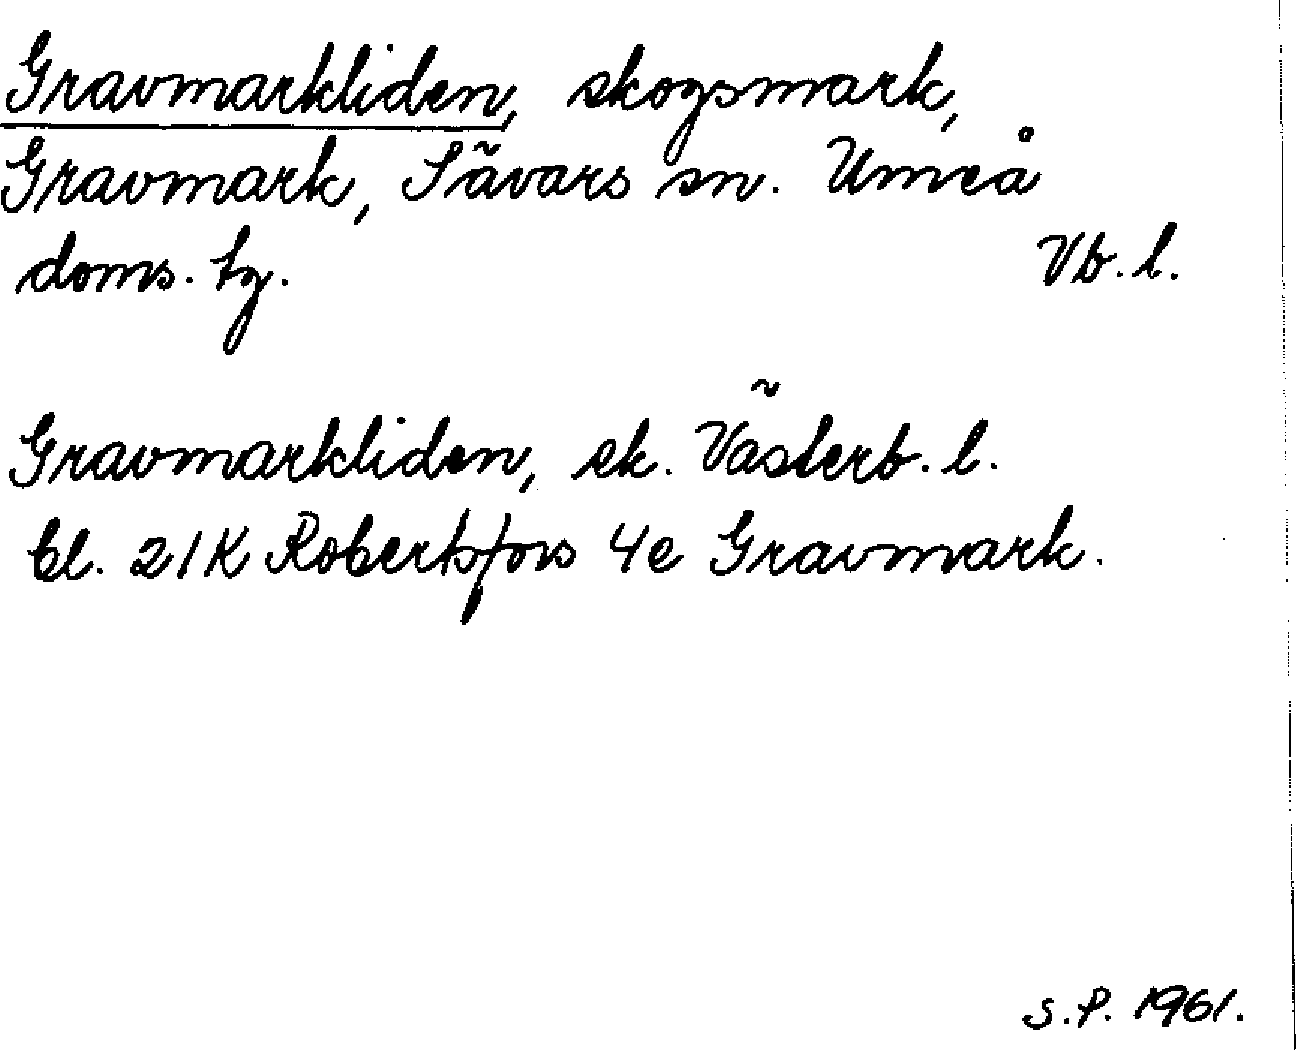 Gravmarkliden, skogsmark,
Gravmark, Sävars sn. Umeå
doms. tg. Vb. l.
Gravmarkliden, ek. Västerb. l.
bl. 21K Robertsfors 4e Gravmark.
S.P. 1961.